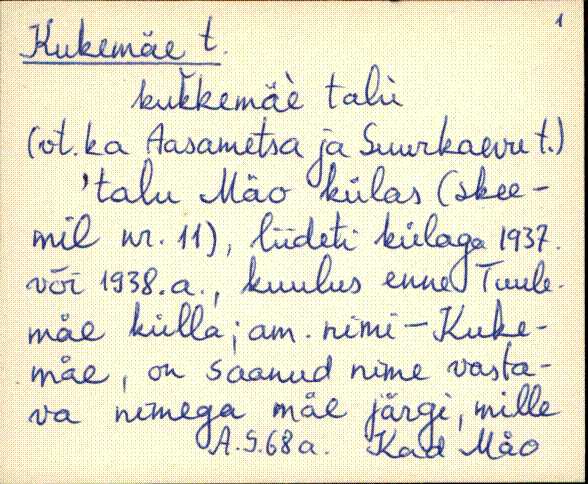 1
Kukemäe t.
kukkemäè talù
(vt. ka Aasametsa ja Suurkaevu t.)
'talu Mäo külas (skee-
mil nr. 11), liideti külaga 1937.
või 1938. a., kuulus enne Tuule-
mäe külla; am. nimi - Kuke-
mäe, on saanud nime vasta-
va nimega mäe järgi, mille
A.S. 68 a. Kad Mäo